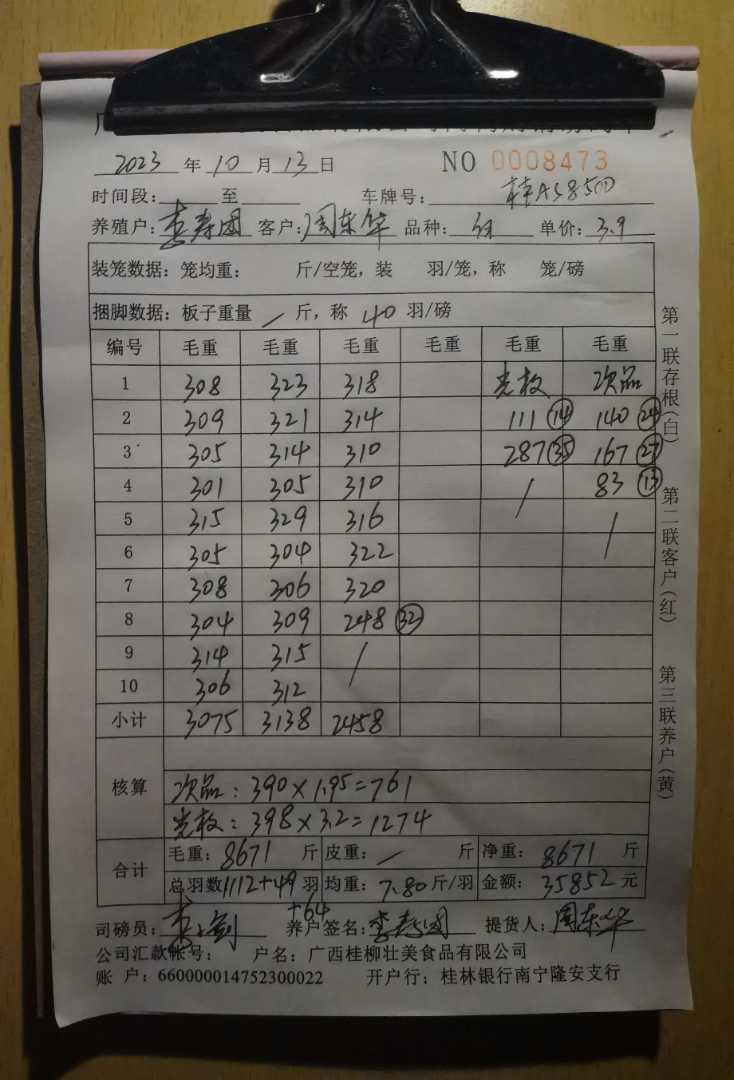 2023 年 10 月 13 日 NO 0008473
时间段: 至 车牌号: 桂AS8500
养殖户: 李寿团 客户: 周东华 品种: 单价: 3.9
装笼数据: 笼均重: 斤/空笼, 装 羽/笼, 称 笼/磅
捆脚数据: 板子重量 / 斤, 称 40 羽/磅
编号 毛重 毛重 毛重 毛重 毛重 毛重
1 308 323 318 光板 次品
2 309 321 314 111 (14) 140 (24)
3 305 314 310 287 (35) 167 (27)
4 301 305 310 / 83 (13)
5 315 329 316 /
6 305 304 322
7 308 306 320
8 304 309 248 (32)
9 314 315 /
10 306 312
小计 3075 3138 2458
核算
次品: 390×1.95=761
光板: 398×3.2=1274
合计
毛重: 8671 斤 皮重: / 斤 净重: 8671 斤
总羽数 1112+49 羽 均重: 7.80 斤/羽 金额: 35852 元
+64
司磅员: 养户签名: 李寿团 提货人: 周东华
公司汇款帐号: 户名: 广西桂柳壮美食品有限公司
账 户: 660000014752300022 开户行: 桂林银行南宁隆安支行
第一联存根(白)
第二联客户(红)
第三联养户(黄)